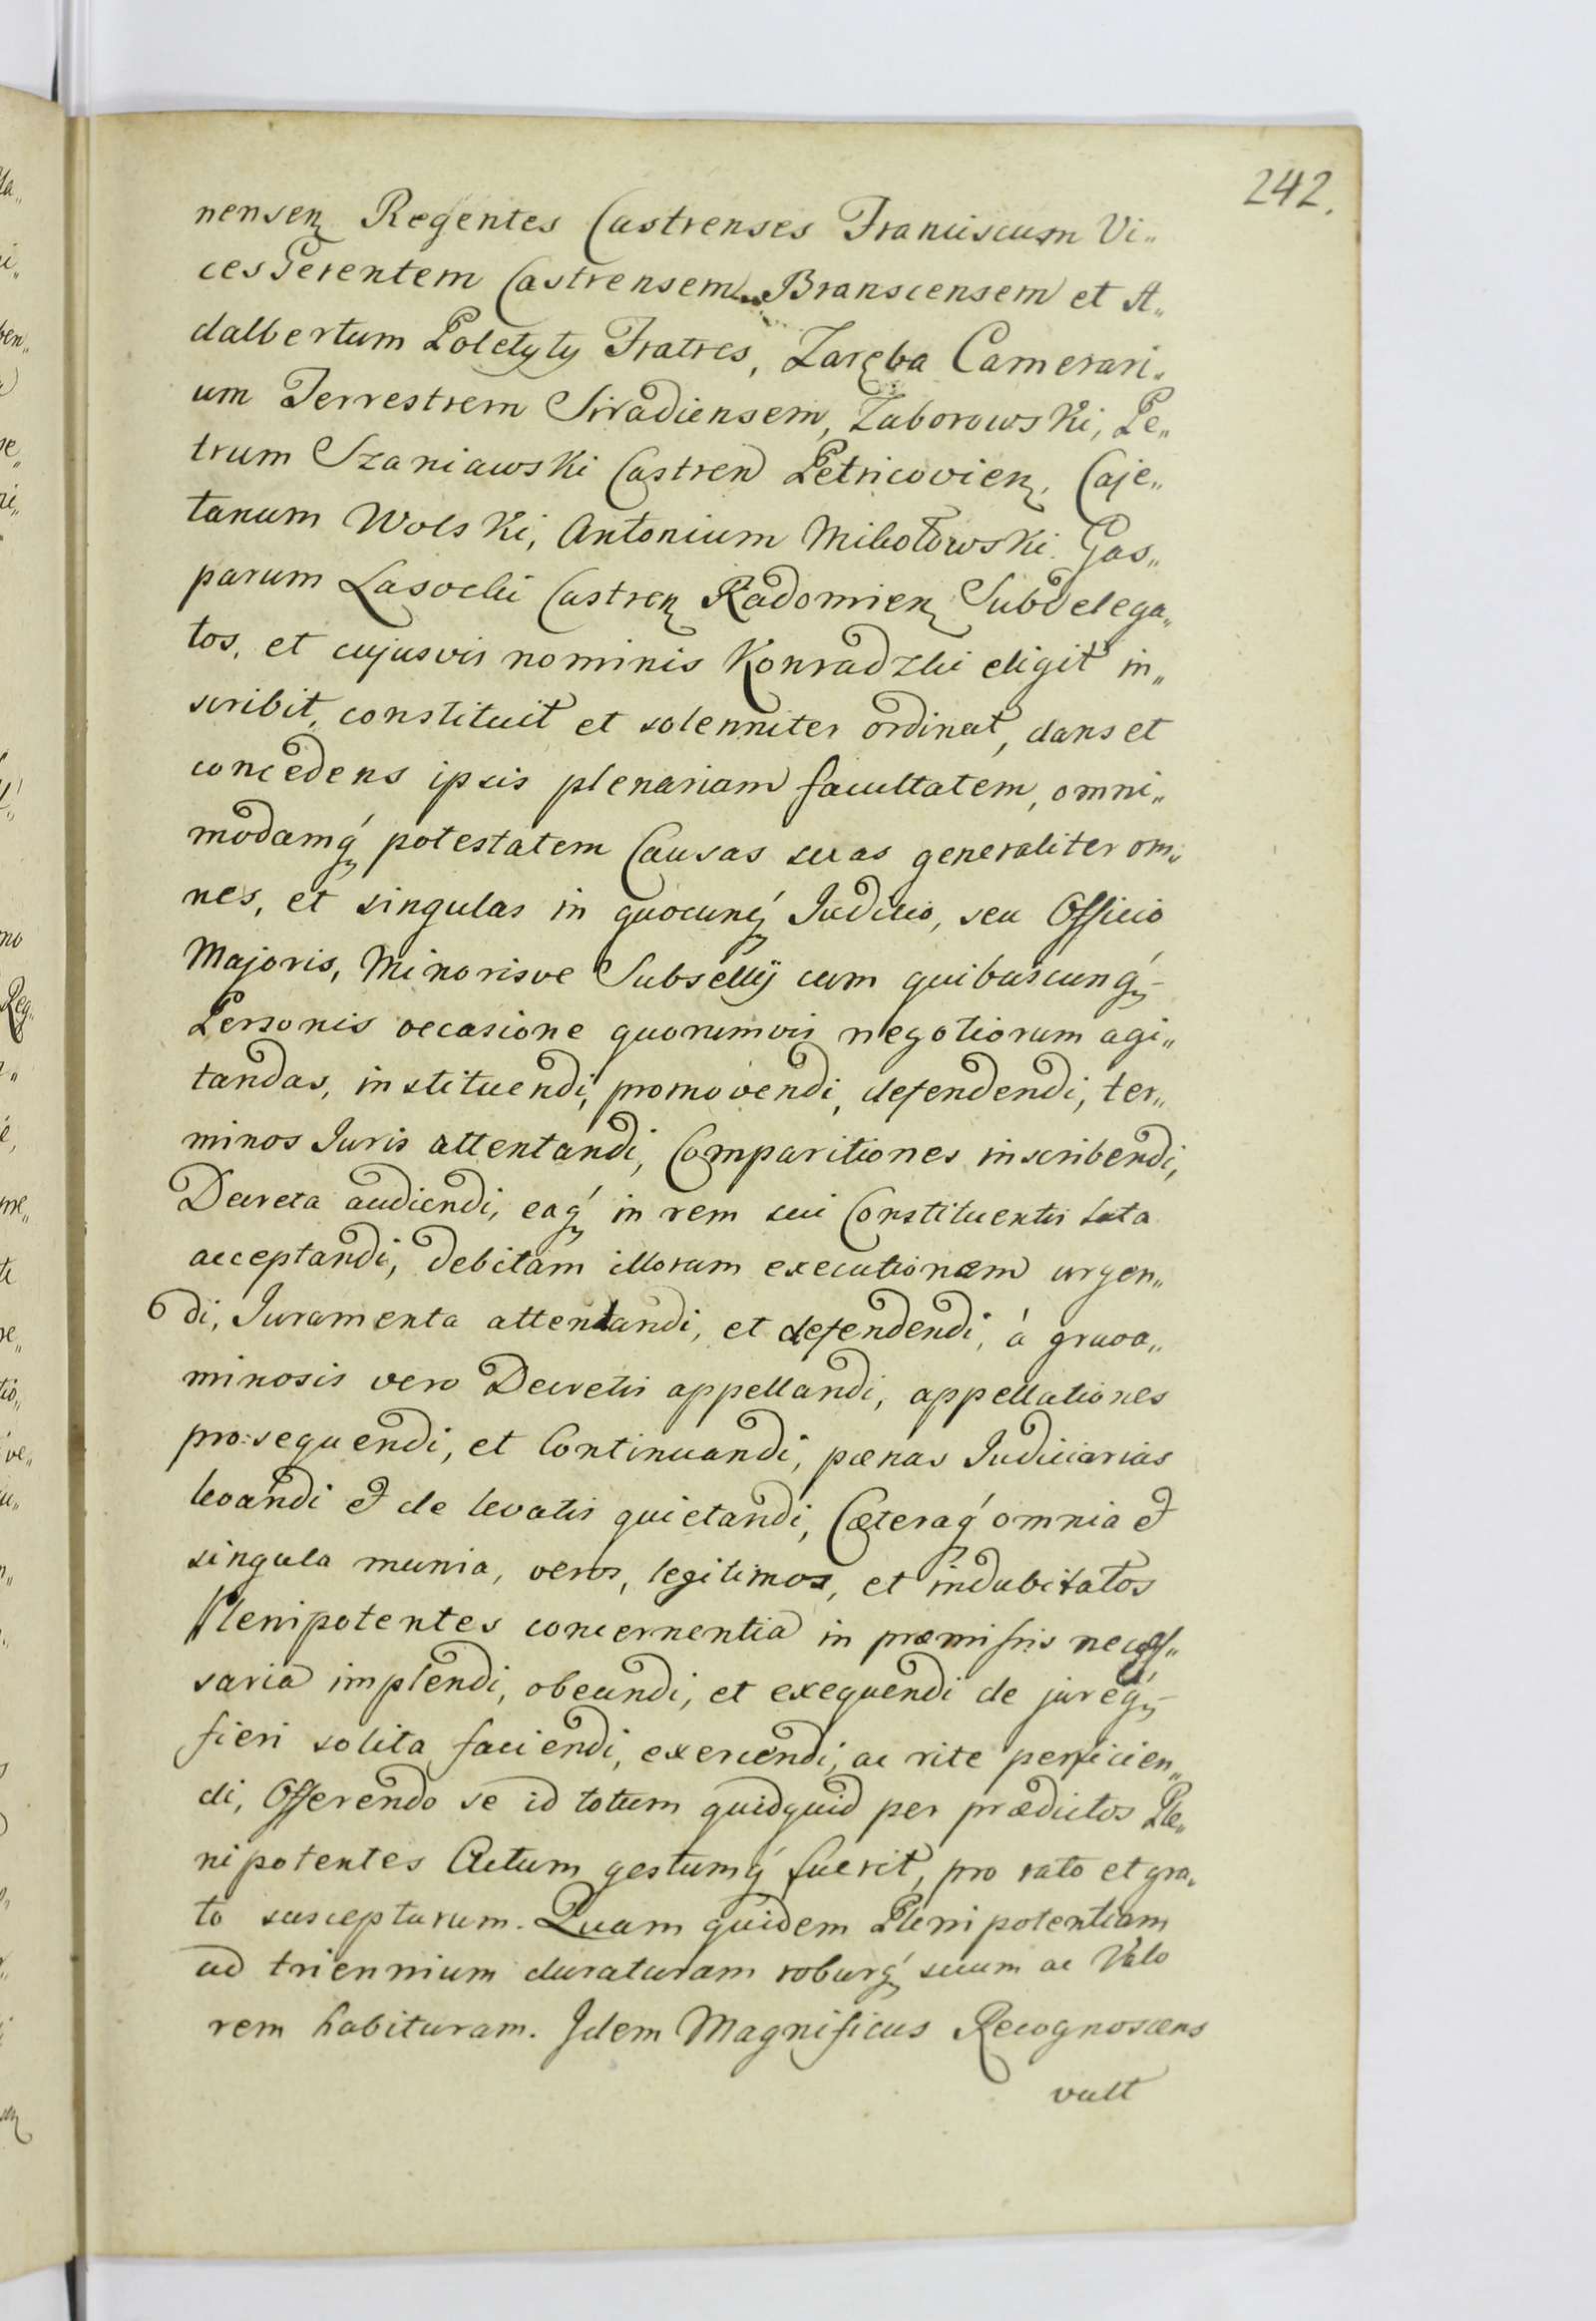 242.
nensen Regentes Castrenses Franciscum Vi„
cesGerentem Castrensem Branscensem et A„
dalbertum Poletyty Fratres, Zaręba Camerari„
um Terrestrem Siradiensem, Zaborowski, Pe„
trum Szaniawski Castren Petricovien, Caje„
tanum Wolski, Antonium Mikołowski Gas„
parum Lasocki Castren Radomien Subdelega„
tos, et cujusvis nominis Konradzki eligit in„
scribit, constituit et solenniter ordinat, dans et
concedens ipsis plenariam facultatem, omni„
modamq́ potestatem Causas suas generaliter om„
nes, et singulas in quocunq́ Judicio, seu Officio
Majoris, Minorisve Subsellij cum quibuscunq́
Personis occasione quorumvis negotiorum agi„
tandas, instituendi, promovendi, defendendi, ter„
minos Juris attentandi, Comparitiones inscribendi,
Decreta audiendi, eaq́ in rem sui Constituentis lata
acceptandi, debitam illorum executionem urgen„
di, Juramenta attentandi, et defendendi, á grava„
minosis vero Decretis appellandi, appellationes
prosequendi, et Continuandi, pænas Judiciarias
levandi et de levatis quietandi, Cæteraq́ omnia et
singula munia, veros, legitimos, et indubitatos
Plenipotentes concernentia in præmissis neces„
saria implendi, obeundi, et exequendi de jureq́
fieri solita faciendi, exercendi, ac rite perficien„
di, Offerendo se id totum quidquid per prædictos Ple„
nipotentes Actum gestumq́ fuerit, pro rato et gra„
to suscepturum. Quam quidem Plenipotentiam
ad triennium duraturam roburq́ suum ac Valo
rem habituram. Idem Magnificus Recognoscens
vult